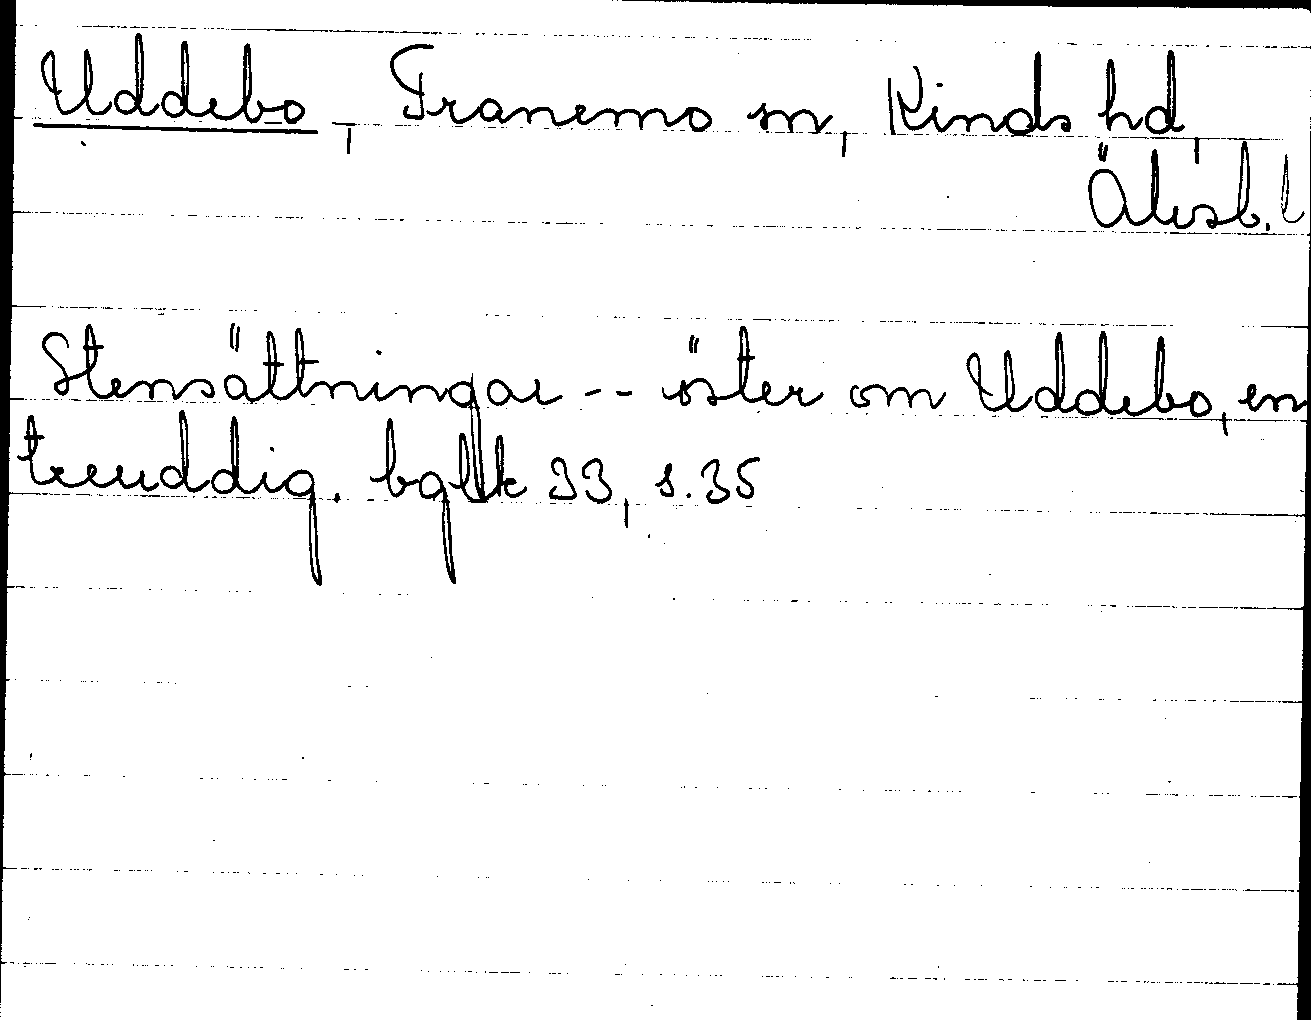 Uddebo, Tranemo sn, Kinds hd,
Älvsb. l
Stensättningar -- öster om Uddebo, en
treuddig. bglbk 33, s. 35